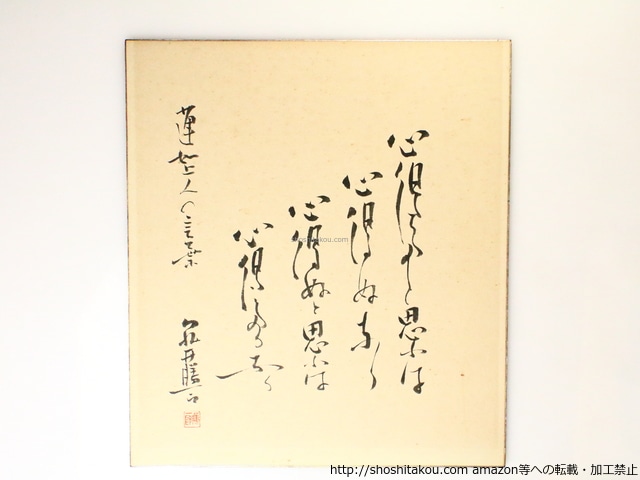 心得たと思ふは
心得ぬなり
心得ぬと思ふは
心得たるなり
蓮如上人の言葉
shoshitakou.com
http://shoshitakou.com amazon等への転載・加工禁止